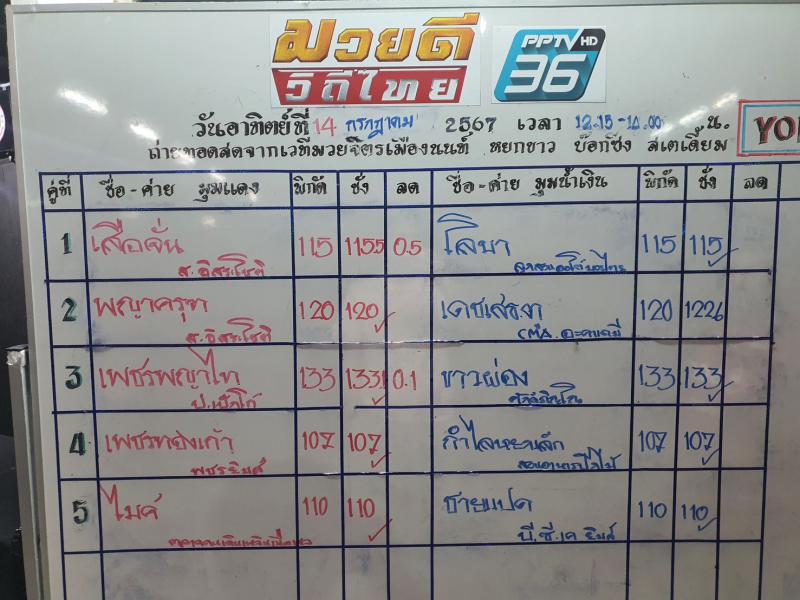 มวยดี
วิถีไทย
PPTV HD
36
วันอาทิตย์ที่ 14 กรกฎาคม 2567 เวลา 12.15-14.00 น.
ถ่ายทอดสดจากเวทีมวยจิตรเมืองนนท์ หยกขาว บ๊อกซิ่ง สเตเดี้ยม
คู่ที่ ชื่อ-ค่าย มุมแดง พิกัด ชั่ง ลด ชื่อ-ค่าย มุมน้ำเงิน พิกัด ชั่ง ลด
1 เสือจั่น 115 115.5 0.5 โลมา 115 115
ส.อิสระโชติ
2 พญาครุฑ 120 120 เดชเสธ.งา 120 122.6
ส.อิสระโชติ CMA.อะคาเดมี่
3 เพชรพญาไท 133 133.1 0.1 ขาวผ่อง 133 133
4 เพชรทองเก้า 107 107 กำไลหยก 107 107
เพชรยิมส์
5 ไมค์ 110 110 ชายแปด 110 110
บี.ซี.เค ยิมส์